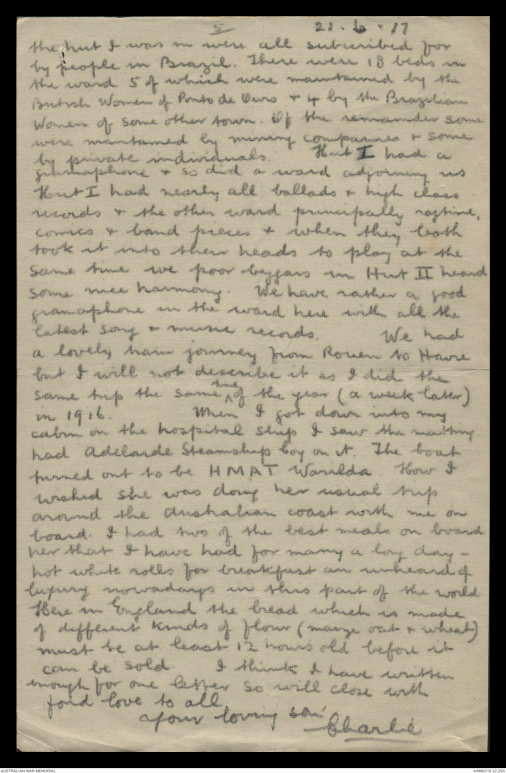 5 21.6.17
the hut I was in were all subscribed for
by people in Brazil. There were 18 beds in
the ward 5 of which were maintained by the
British Women of Porto de Ouro & 4 by the Brazilian
Women of some other town. Of the remainder some
were maintained by mining companies & some
by private individuals. Hut I had a
gramaphone & so did a ward adjoining us
Hut I had nearly all ballads & high class
records & the other ward principally ragtime,
comics & band pieces & when they both
took it into their heads to play at the
same time we poor beggars in Hut II heard
some nice harmony. We have rather a good
gramaphone in the ward here with all the
latest song & music records. We had
a lovely train journey from Rouen to Havre
but I will not describe it as I did the
same trip the same time of the year (a week later)
in 1916. When I got down into my
cabin on the hospital ship I saw the matting
had Adelaide Steamship Coy on it. The boat
turned out to be HMAT Warilda. How I
wished she was doing her usual trip
around the Australian coast with me on
board. I had two of the best meals on board
her that I have had for many a long day –
hot white rolls for breakfast an unheard of
luxury nowadays in this part of the world
Here in England the bread which is made
of different kinds of flour (maize oat & wheat)
must be at least 12 hours old before it
can be sold. I think I have written
enough for one letter so will close with
fond love to all
Your loving son
Charlie
AUSTRALIAN WAR MEMORIAL